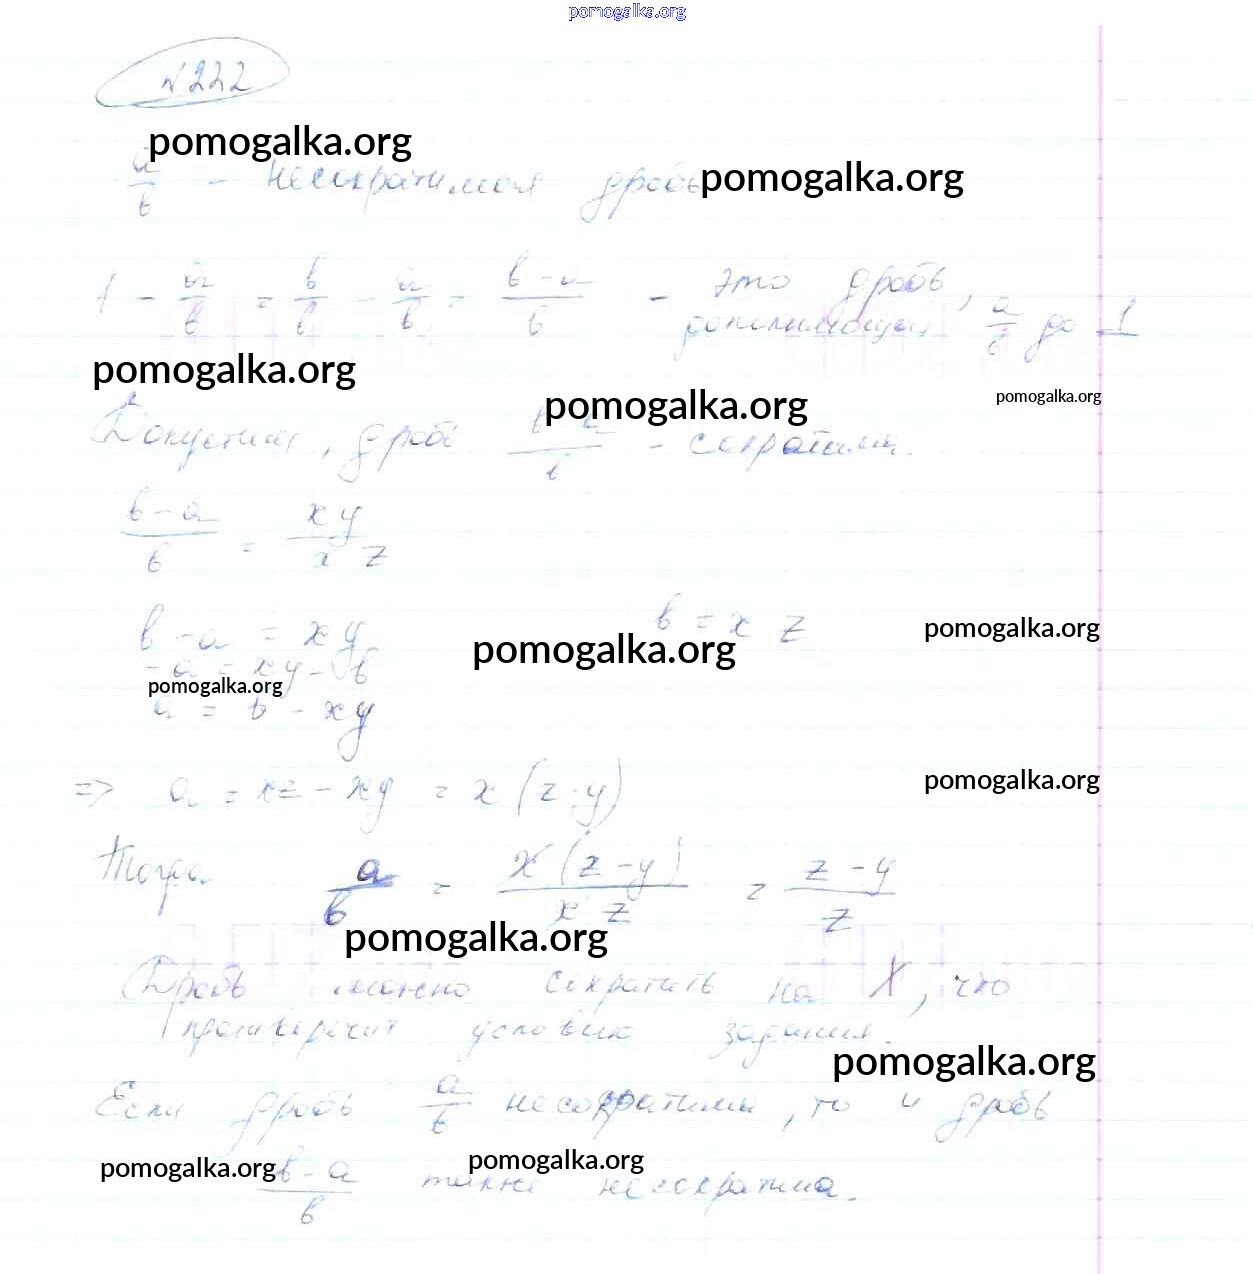 pomogalka.org
N 222
pomogalka.org
a/b - несократимая дробь pomogalka.org
1 - a/b = b/b - a/b = b-a/b - это дробь,
дополняющая a/b до 1
pomogalka.org
pomogalka.org pomogalka.org
Допустим, дробь b-a/b - сократима.
b-a/b = xy/xz
b - a = xy b = x z pomogalka.org
pomogalka.org
-a = xy - b
pomogalka.org
a = b - xy
=> a = xz - xy = x (z-y) pomogalka.org
Тогда a/b = x(z-y)/x z = z-y/z
pomogalka.org
Дробь можно сократить на X, что
противоречит условию задания.
pomogalka.org
Если дробь a/b несократима, то и дробь
pomogalka.org pomogalka.org
b-a/b также несократима.